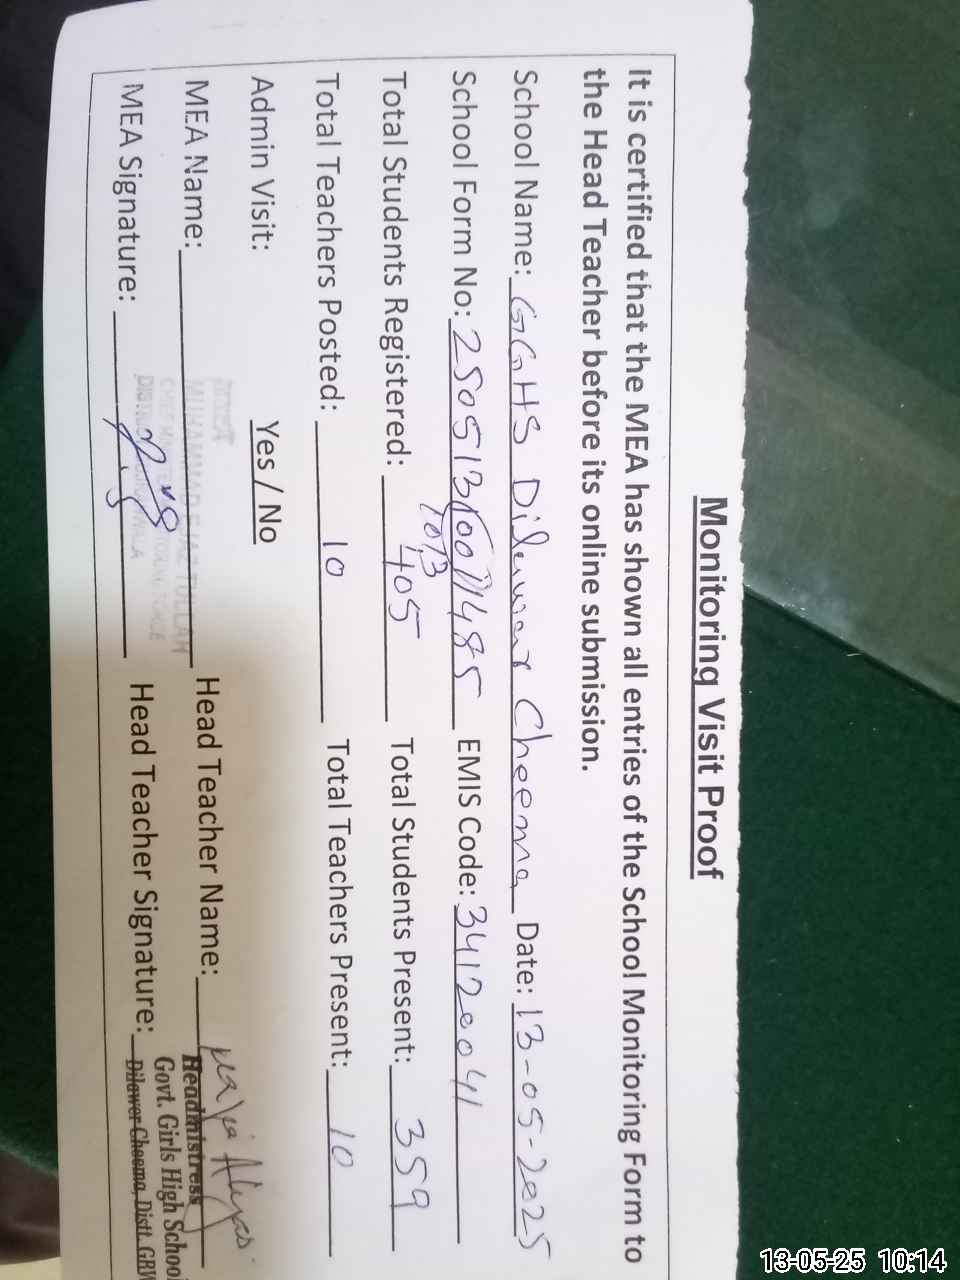 Monitoring Visit Proof
It is certified that the MEA has shown all entries of the School Monitoring Form to
the Head Teacher before its online submission.
School Name: GGHS Dilawar Cheema Date: 13-05-2025
School Form No: EMIS Code: 34120041
Total Students Registered: 405 Total Students Present: 359
Total Teachers Posted: 10 Total Teachers Present: 10
Admin Visit: Yes / No
MEA Name: Head Teacher Name:
MEA Signature: Head Teacher Signature:
Headmistress
Govt. Girls High School
Dilawar Cheema, Distt. GRW
13-05-25 10:14